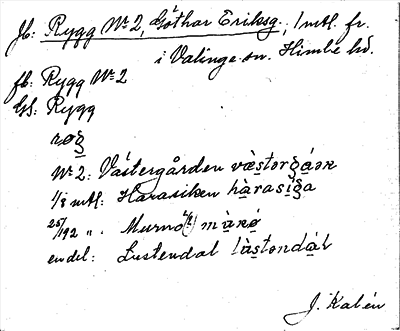 fb: Rygg Nr 2, Göthar Eriksg., 1 mtl. fr.
i Valinge sn. Himle hd.
fb: Rygg Nr 2
Gs: Rygg
røg
Nr 2: Västergården væstərgáən
1/8 mtl: Harasiken hàrasiga
25/192 „. Murnö
en del: Lustendal lùstəndál
J. Kalén